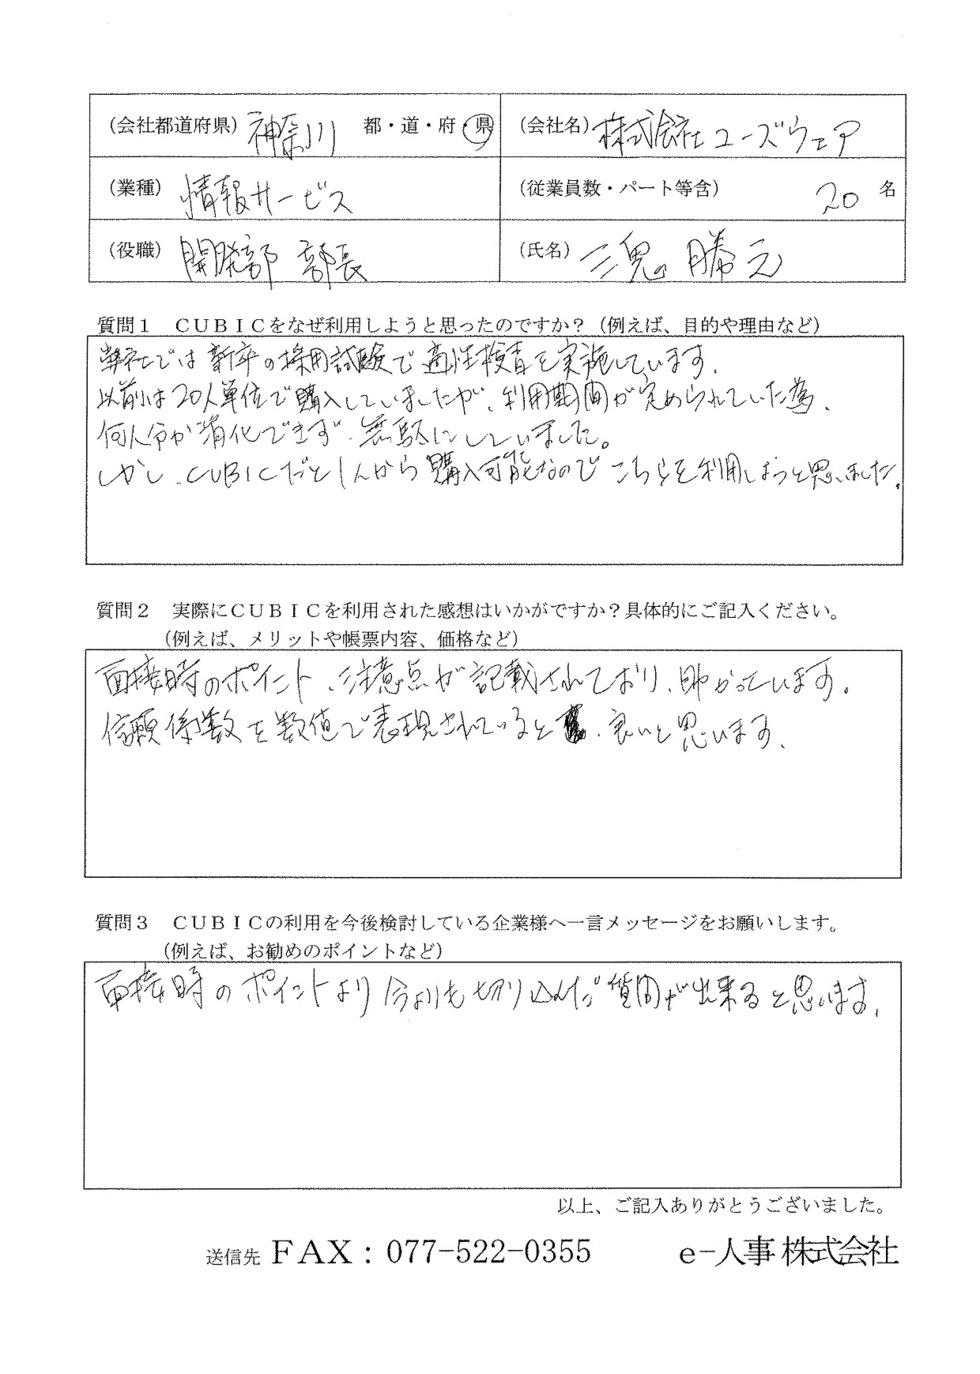 (会社都道府県) 神奈川 都・道・府・県 (会社名) 株式会社ユーズウェア
(業種) 情報サービス (従業員数・パート等含) 20 名
(役職) 開発部 部長 (氏名) 三鬼 勝元
質問1 CUBICをなぜ利用しようと思ったのですか?(例えば、目的や理由など)
弊社では新卒の採用試験で適性検査を実施しています.
以前は20人単位で購入していましたが、利用期間が定められていた為、
何人分か消化できず、無駄にしていました。
しかし、CUBICだと1人から購入可能なのでこちらを利用しようと思いました.
質問2 実際にCUBICを利用された感想はいかがですか?具体的にご記入ください。
(例えば、メリットや帳票内容、価格など)
面接時のポイント、注意点が記載されており、助かっています。
信頼係数を数値で表現されていると、良いと思います.
質問3 CUBICの利用を今後検討している企業様へ一言メッセージをお願いします。
(例えば、お勧めのポイントなど)
面接時のポイントより今よりも切り込んだ質問が出来ると思います.
以上、ご記入ありがとうございました。
送信先 FAX:077-522-0355 e-人事株式会社